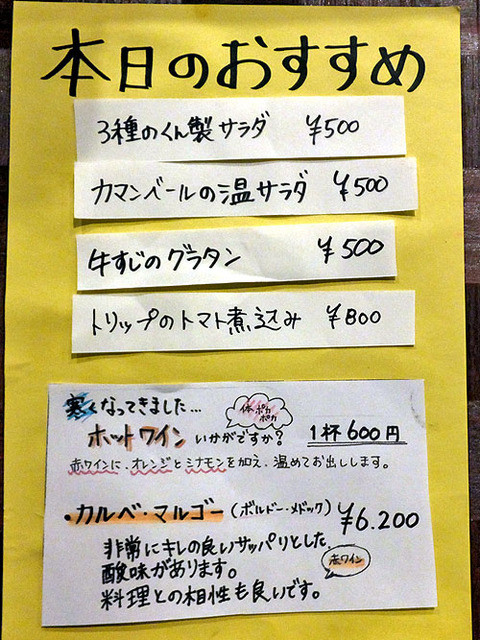 本日のおすすめ
3種のくん製サラダ ¥500
カマンベールの温サラダ ¥500
牛すじのグラタン ¥500
トリップのトマト煮込み ¥800
寒くなってきました…
体ポカポカ
ホットワインいかがですか? 1杯600円
赤ワインに、オレンジとシナモンを加え、温めてお出しします。
・カルベ・マルゴー(ボルドー・メドック) ¥6.200
非常にキレの良いサッパリとした
酸味があります。
赤ワイン
料理との相性も良いです。